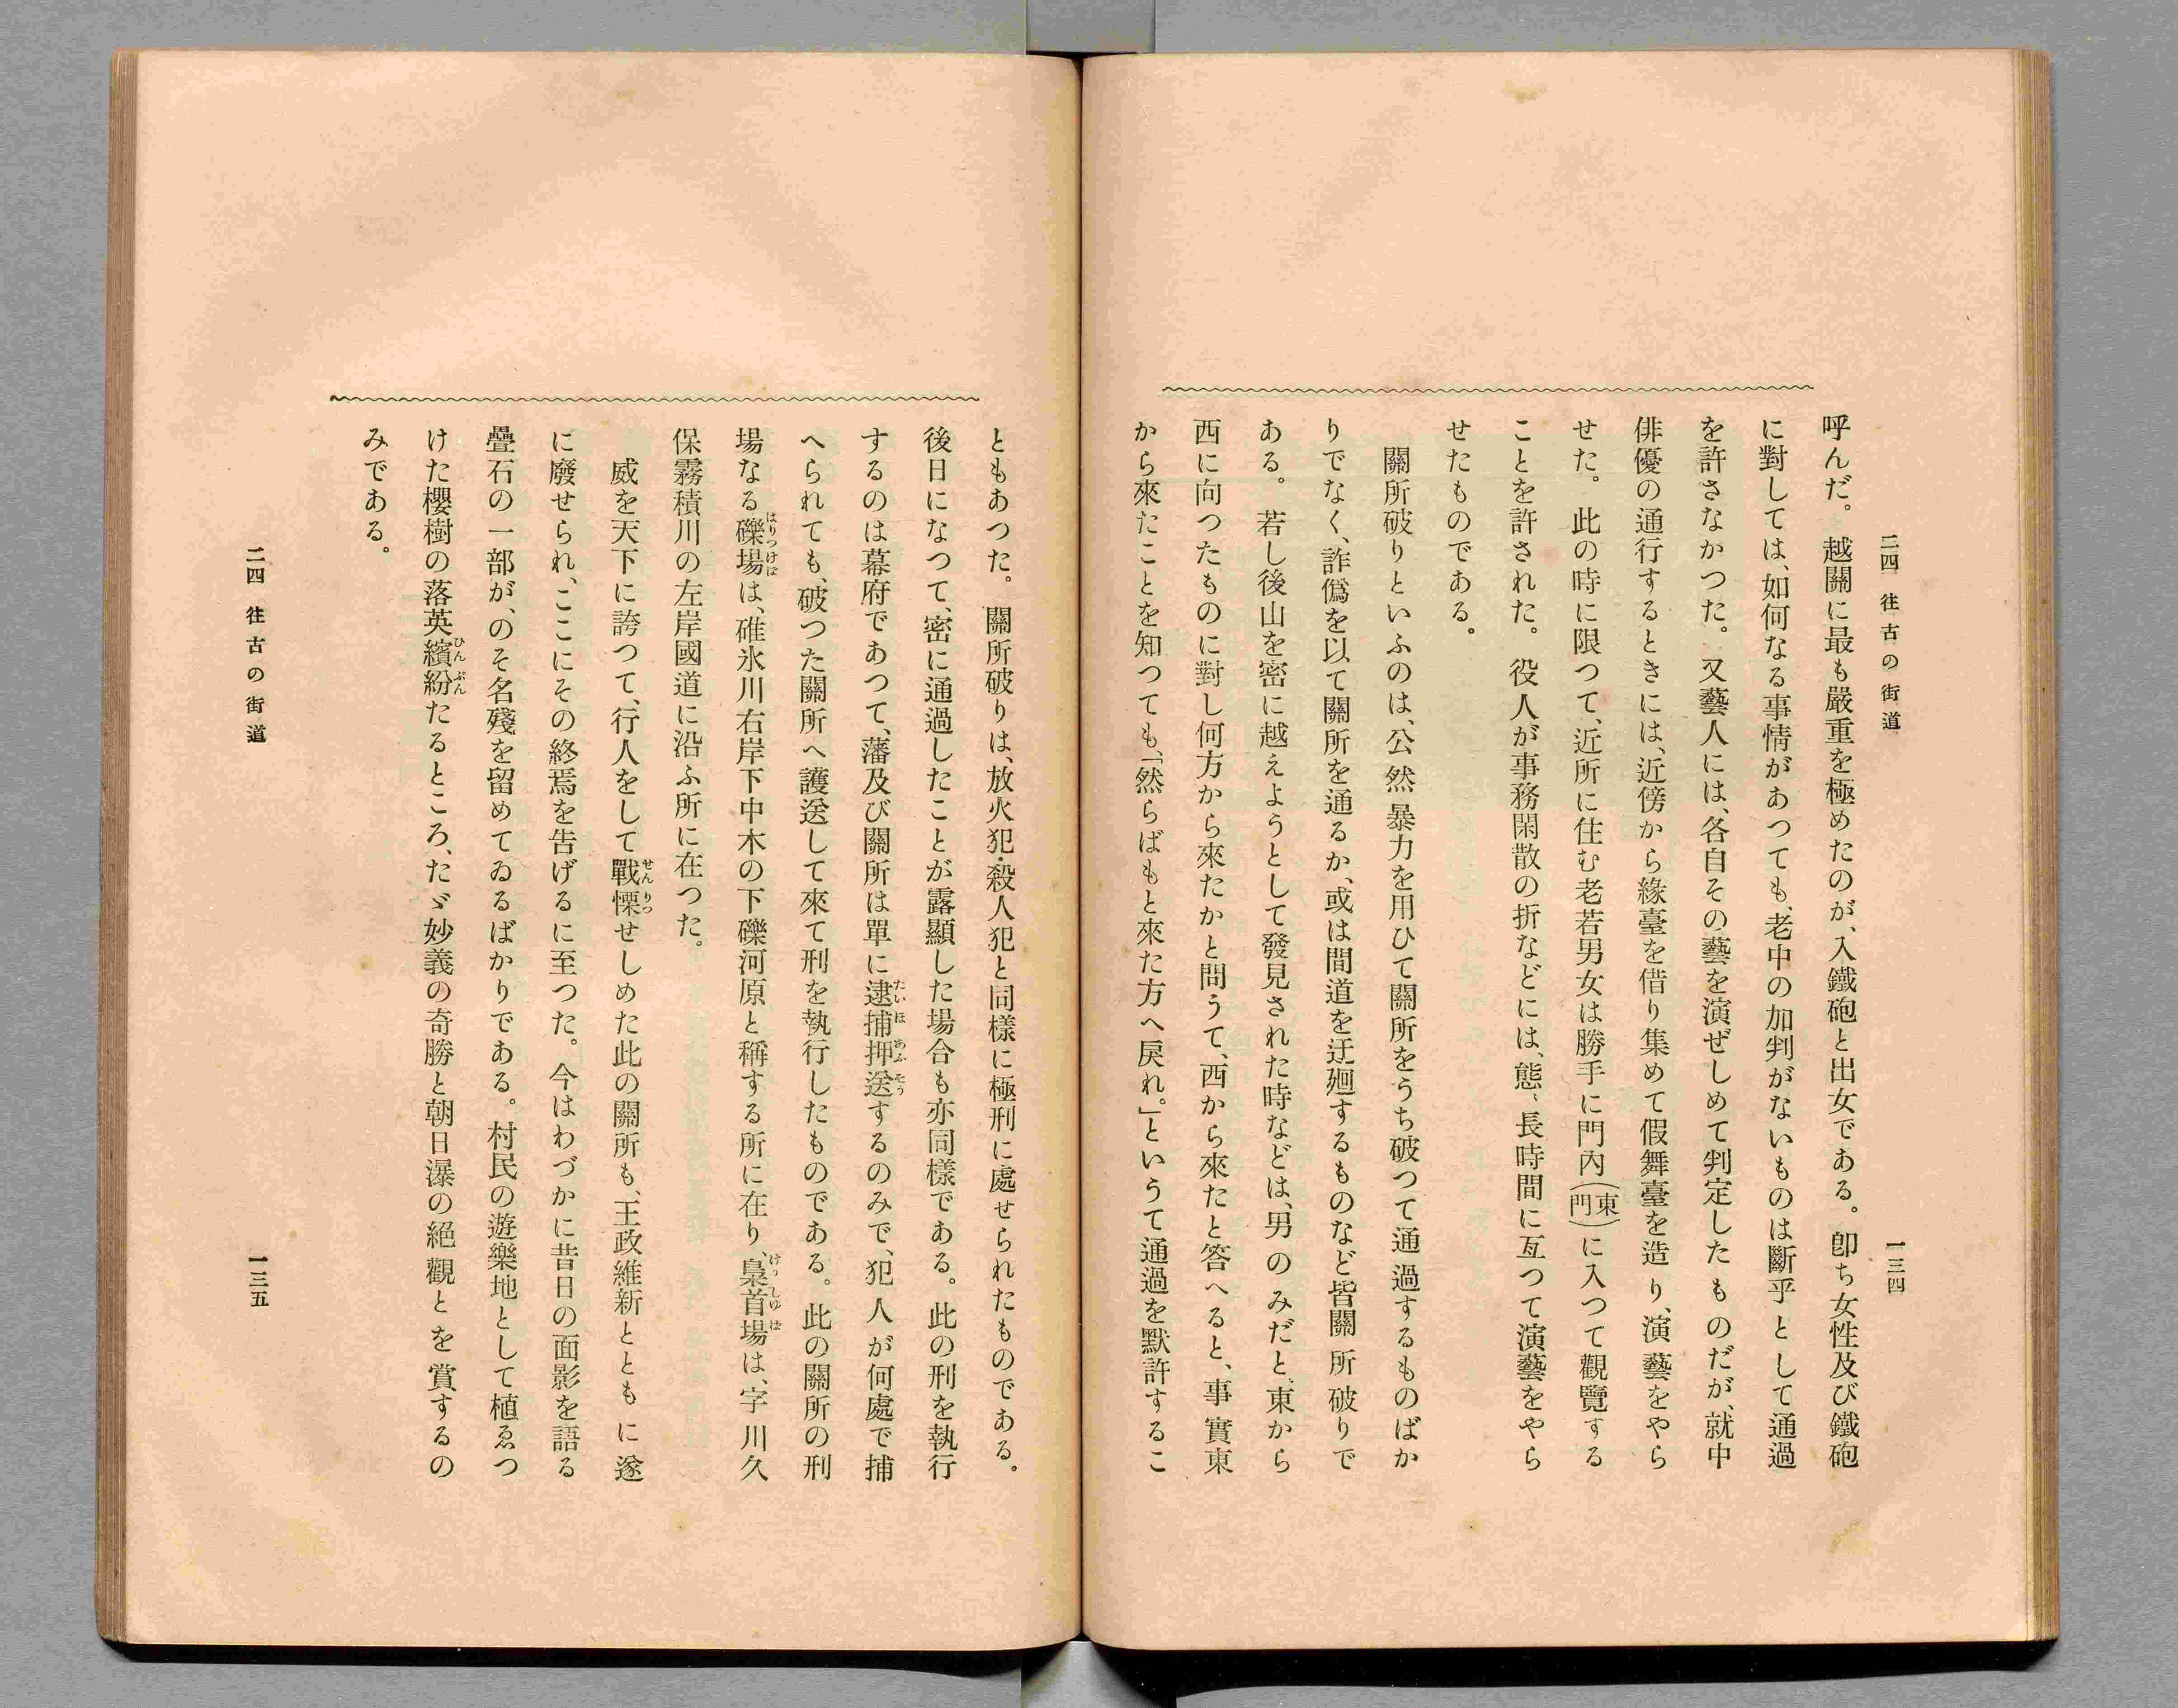 二四 往古の街道
一三四
呼んだ。越關に最も嚴重を極めたのが、入鐵砲と出女である。卽ち女性及び鐵砲
に對しては、如何なる事情があつても、老中の加判がないものは斷乎として通過
を許さなかつた。又藝人には、各自その藝を演ぜしめて判定したものだが、就中
俳優の通行するときには、近傍から緣臺を借り集めて假舞臺を造り、演藝をやら
せた。此の時に限つて、近所に住む老若男女は勝手に門內(東門)に入つて觀覽する
ことを許された。役人が事務閑散の折などには、態〻長時間に亙つて演藝をやら
せたものである。
關所破りといふのは、公然暴力を用ひて關所をうち破つて通過するものばか
りでなく、詐僞を以て關所を通るか、或は間道を迂廻するものなど皆關所破りで
ある。若し後山を密に越えようとして發見された時などは、男のみだと、東から
西に向つたものに對し何方から來たかと問うて、西から來たと答へると、事實東
から來たことを知つても、「然らばもと來た方へ戾れ。」というて通過を默許するこ
ともあつた。關所破りは、放火犯・殺人犯と同樣に極刑に處せられたものである。
後日になつて、密に通過したことが露顯した場合も亦同樣である。此の刑を執行
するのは幕府であつて、藩及び關所は單に逮捕押送するのみで、犯人が何處で捕
へられても、破つた關所へ護送して來て刑を執行したものである。此の關所の刑
場なる礫場は、碓氷川右岸下中木の下礫河原と稱する所に在り、梟首場は、字川久
保霧積川の左岸國道に沿ふ所に在つた。
威を天下に誇つて、行人をして戰慄せしめた此の關所も、王政維新とともに遂
に廢せられ、ここにその終焉を吿げるに至つた。今はわづかに昔日の面影を語る
疊石の一部が、のそ名殘を留めてゐるばかりである。村民の遊樂地として植ゑつ
けた櫻樹の落英繽紛たるところ、たゞ妙義の奇勝と朝日瀑の絕觀とを賞するの
みである。
二四 往古の街道
一三五